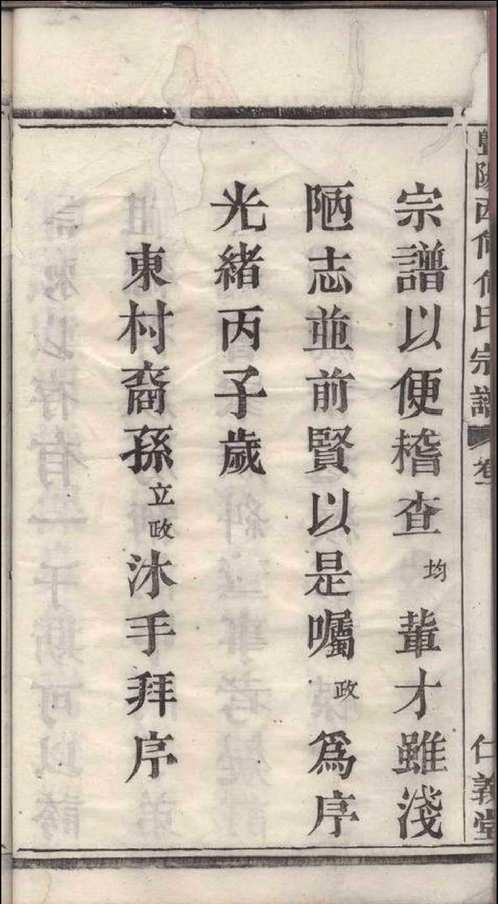 宗譜以便稽查均輩才雖淺
陋志並前賢以是囑政爲序
光緒丙子歲
東村裔孫立政沐手拜序
陽西何何氏宗譜
卷
仁義堂